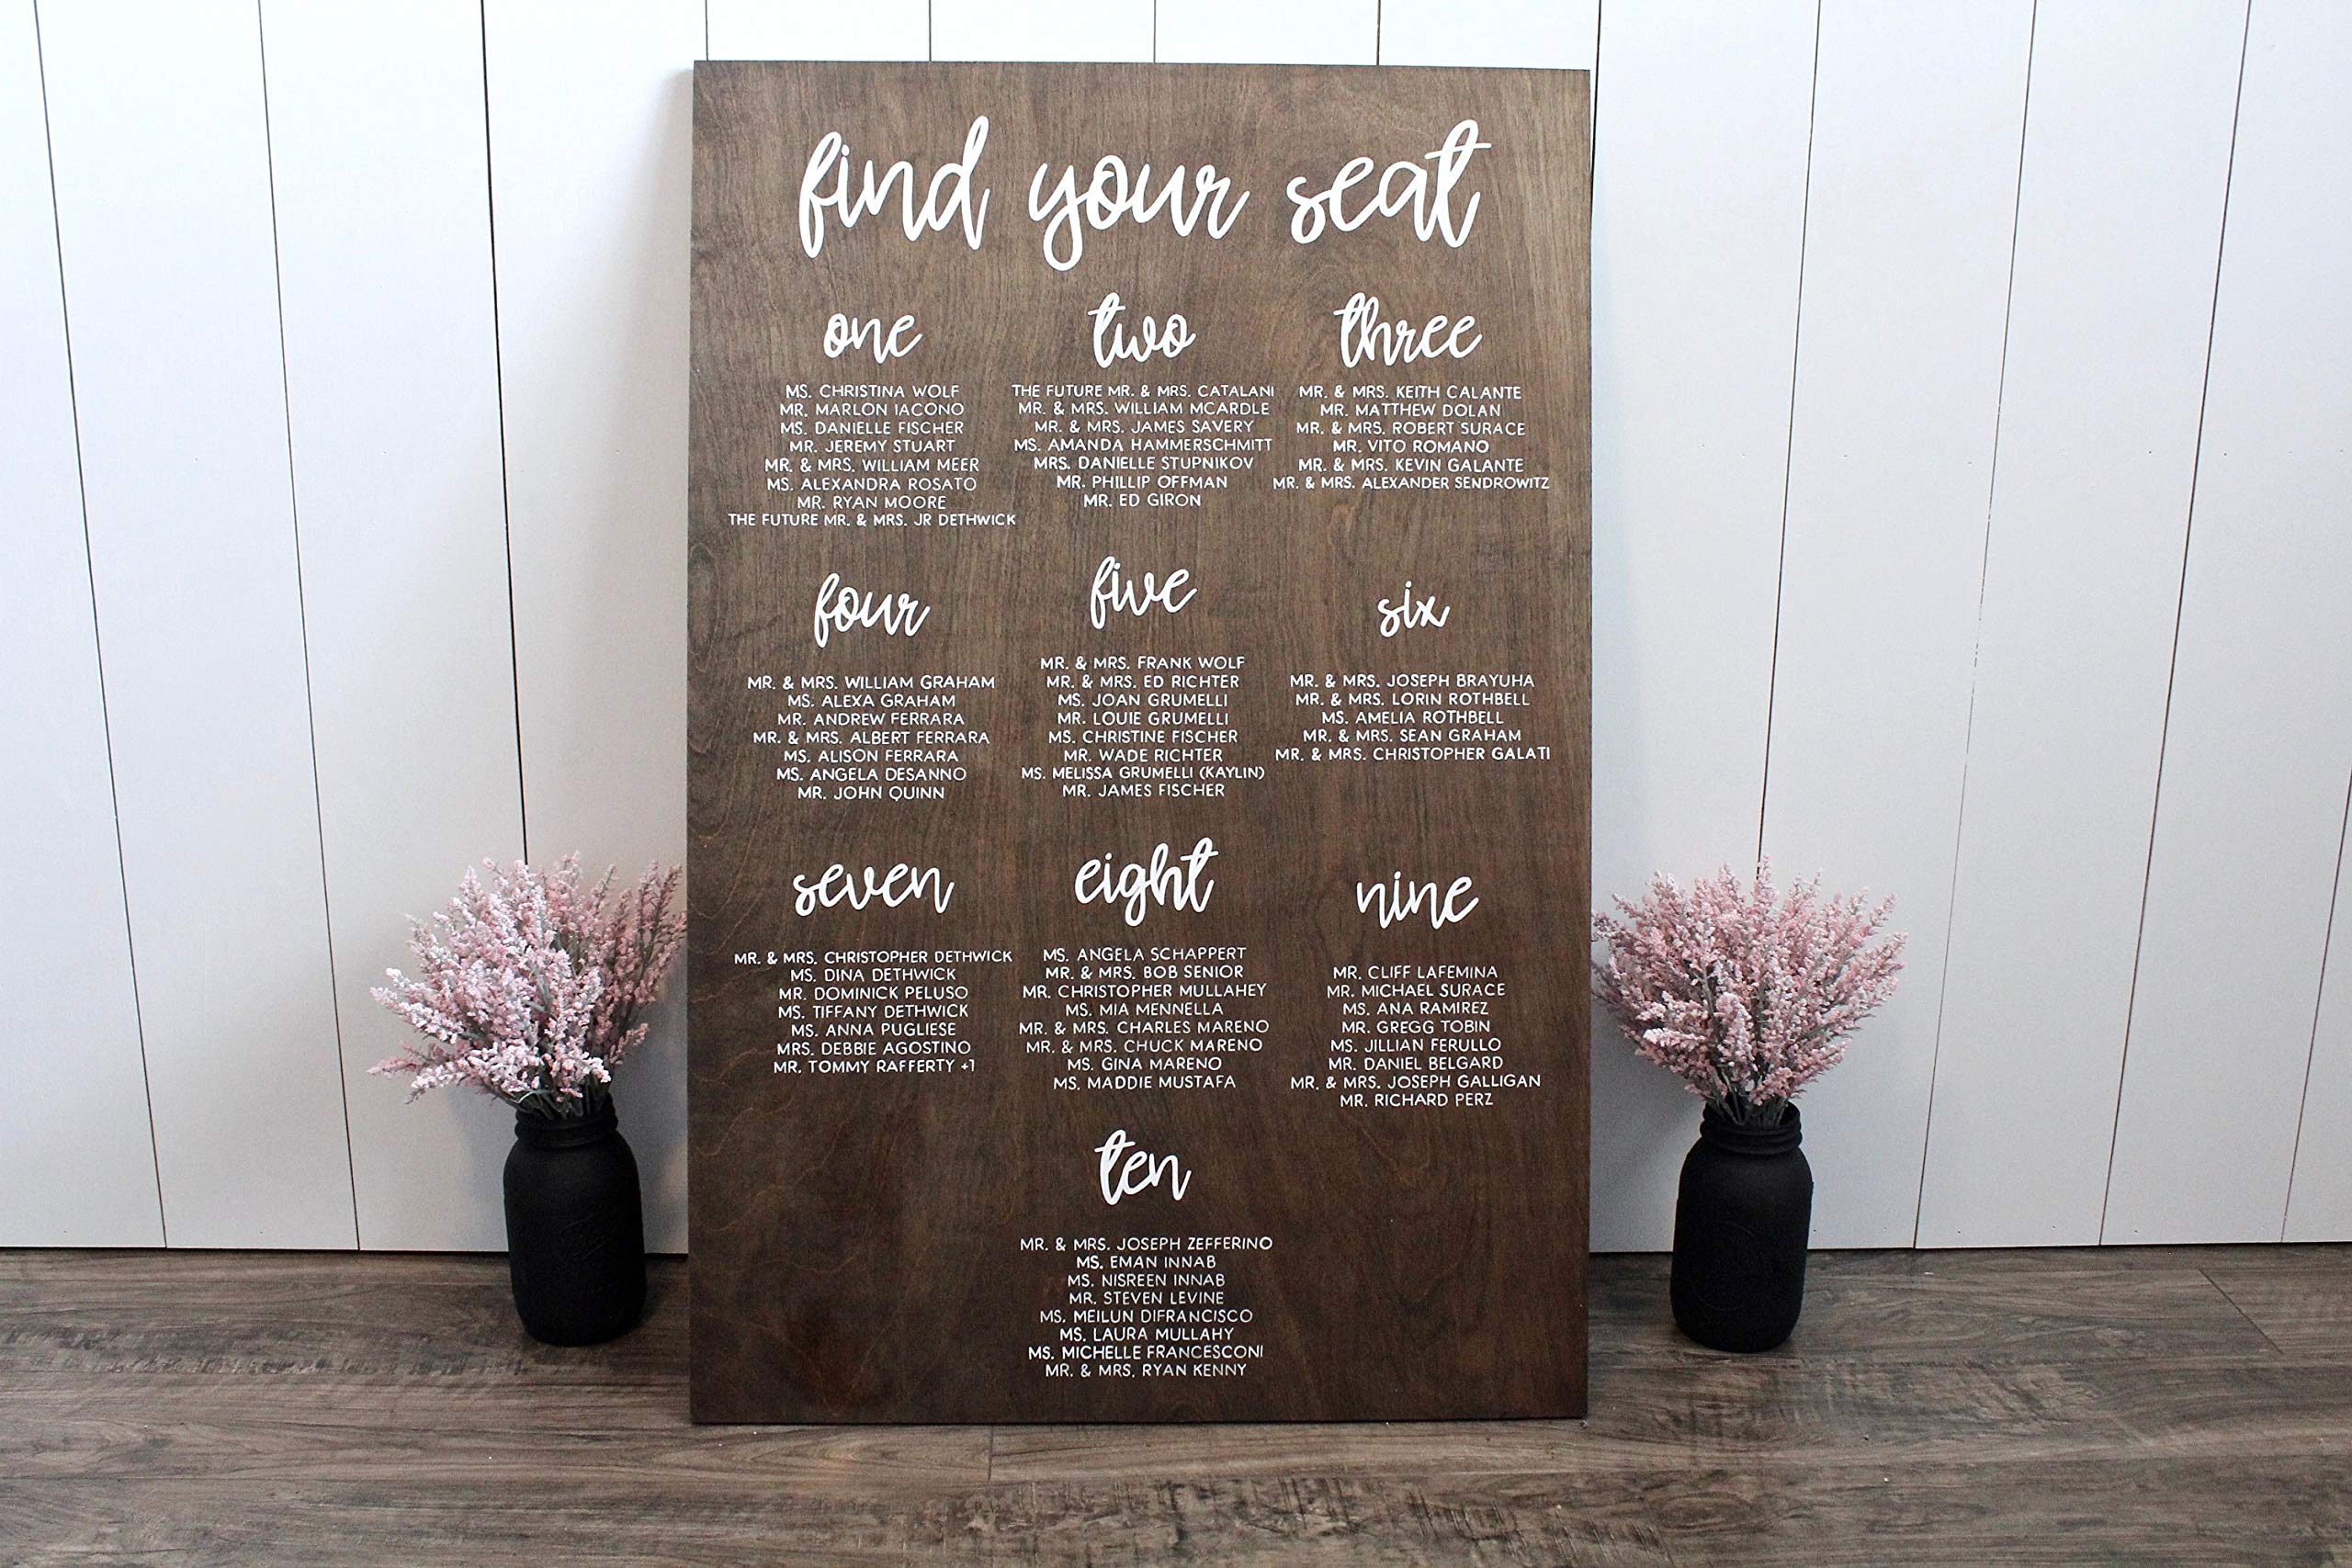 find your seat
one
MS. CHRISTINA WOLF
MR. MARLON IACONO
MS. DANIELLE FISCHER
MR. JEREMY STUART
MR. & MRS. WILLIAM MEER
MS. ALEXANDRA ROSATO
MR. RYAN MOORE
THE FUTURE MR. & MRS. JR DETHWICK
two
THE FUTURE MR. & MRS. CATALANI
MR. & MRS. WILLIAM MCARDLE
MR. & MRS. JAMES SAVERY
MS. AMANDA HAMMERSCHMITT
MRS. DANIELLE STUPNIKOV
MR. PHILLIP OFFMAN
MR. ED GIRON
three
MR. & MRS. KEITH CALANTE
MR. MATTHEW DOLAN
MR. & MRS. ROBERT SURACE
MR. VITO ROMANO
MR. & MRS. KEVIN GALANTE
MR. & MRS. ALEXANDER SENDROWITZ
four
MR. & MRS. WILLIAM GRAHAM
MS. ALEXA GRAHAM
MR. ANDREW FERRARA
MR. & MRS. ALBERT FERRARA
MS. ALISON FERRARA
MS. ANGELA DESANNO
MR. JOHN QUINN
five
MR. & MRS. FRANK WOLF
MR. & MRS. ED RICHTER
MS. JOAN GRUMELLI
MR. LOUIE GRUMELLI
MS. CHRISTINE FISCHER
MR. WADE RICHTER
MS. MELISSA GRUMELLI (KAYLIN)
MR. JAMES FISCHER
six
MR. & MRS. JOSEPH BRAYUHA
MR. & MRS. LORIN ROTHBELL
MS. AMELIA ROTHBELL
MR. & MRS. SEAN GRAHAM
MR. & MRS. CHRISTOPHER GALATI
seven
MR. & MRS. CHRISTOPHER DETHWICK
MS. DINA DETHWICK
MR. DOMINICK PELUSO
MS. TIFFANY DETHWICK
MS. ANNA PUGLIESE
MRS. DEBBIE AGOSTINO
MR. TOMMY RAFFERTY +1
eight
MS. ANGELA SCHAPPERT
MR. & MRS. BOB SENIOR
MR. CHRISTOPHER MULLAHEY
MS. MIA MENNELLA
MR. & MRS. CHARLES MARENO
MR. & MRS. CHUCK MARENO
MS. GINA MARENO
MS. MADDIE MUSTAFA
nine
MR. CLIFF LAFEMINA
MR. MICHAEL SURACE
MS. ANA RAMIREZ
MR. GREGG TOBIN
MS. JILLIAN FERULLO
MR. DANIEL BELGARD
MR. & MRS. JOSEPH GALLIGAN
MR. RICHARD PERZ
ten
MR. & MRS. JOSEPH ZEFFERINO
MS. EMAN INNAB
MS. NISREEN INNAB
MR. STEVEN LEVINE
MS. MEILUN DIFRANCISCO
MS. LAURA MULLAHY
MS. MICHELLE FRANCESCONI
MR. & MRS. RYAN KENNY